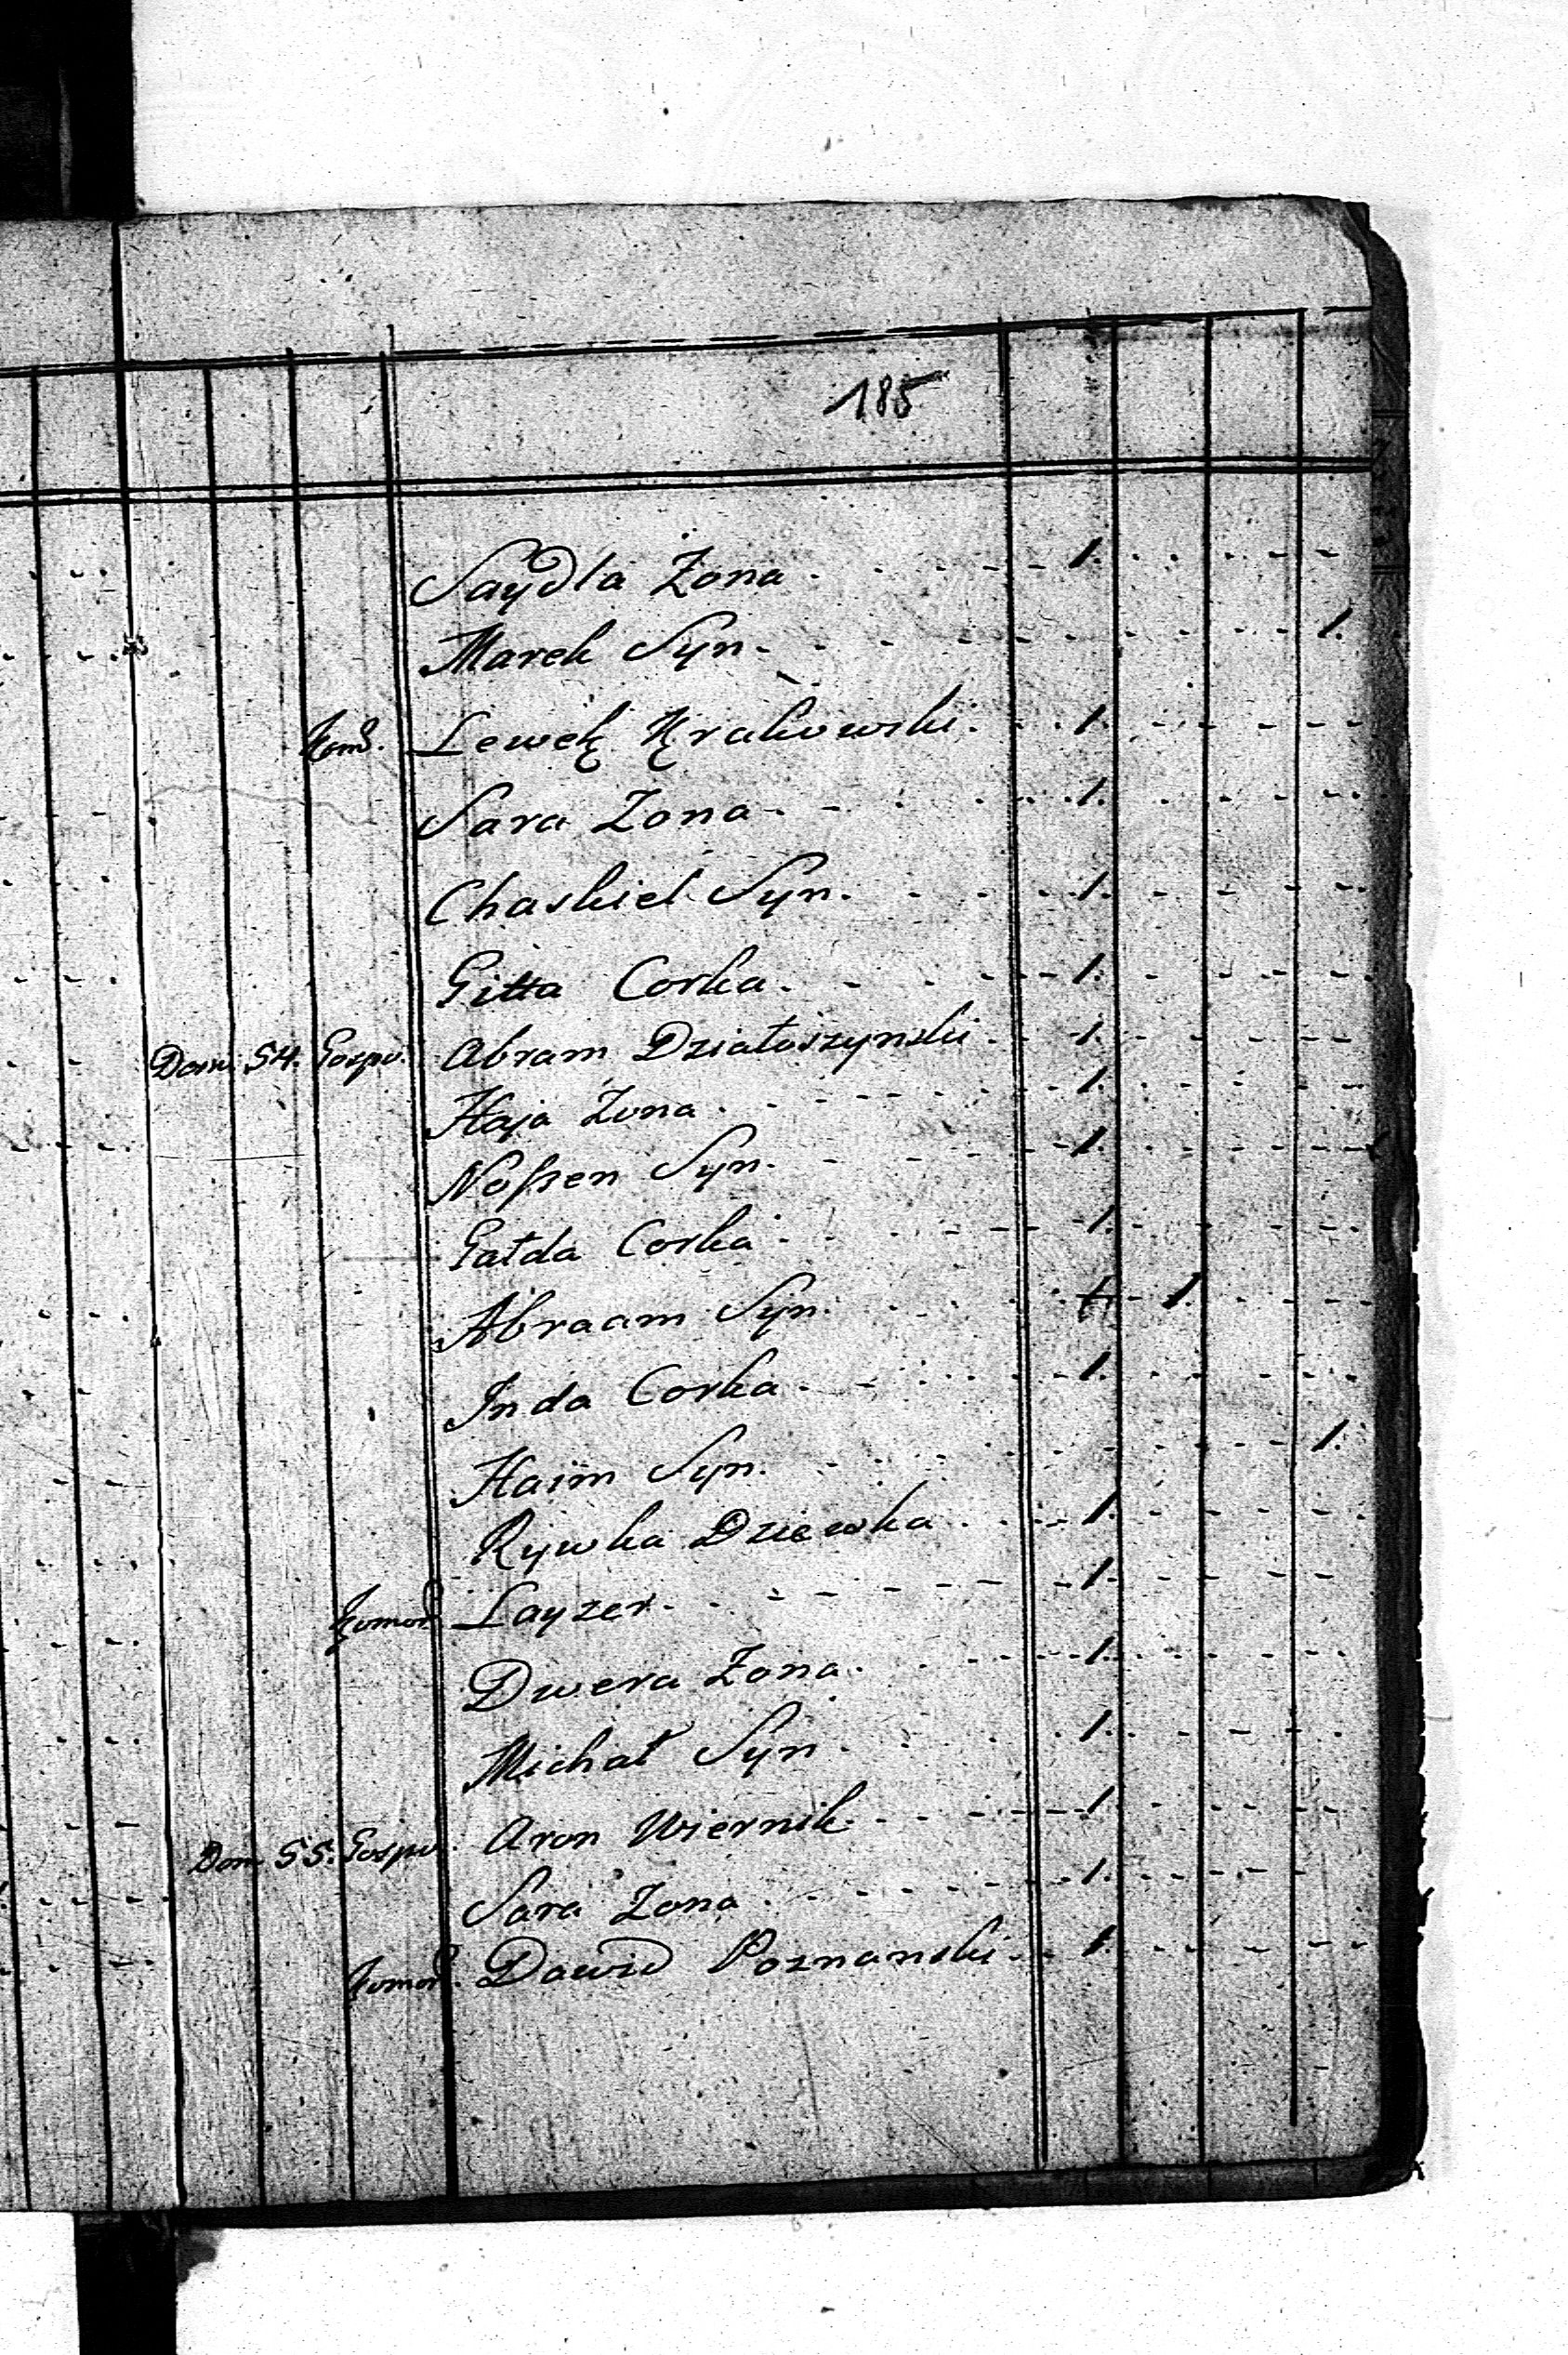 185
Saydla Zona - - - - - 1. - - - -
Marek Syn - - - - - - - - - 1.
Kom. Lewek Krakowski - - 1. - - - -
Sara Zona - - - - 1. - - - -
Chaskiel Syn. - - - - 1. - - - -
Gitta Corka. - - - - 1. - - - -
Dom. 54. Gospo. Abram Działoszynski - 1. - - - -
Haja Zona - - - - - 1. - - - -
Noszen Syn. - - - - 1. - - - -
Gałda Corka - - - - 1. - - - -
Abraam Syn. - - - - 1. - 1. - - -
Inda Corka - - - - 1. - - - -
Haim Syn. - - - - - - - - 1.
Rywka Dziewka - - - 1. - - - -
Komor. Layzer. - - - - - 1. - - - -
Dwera Zona - - - - 1. - - - -
Michał Syn - - - - 1. - - - -
Dom 55. Gospo. Aron Wiernik - - - - 1. - - - -
Sara Zona - - - - - 1. - - - -
Komor. Dawid Poznanski - - 1. - - - -